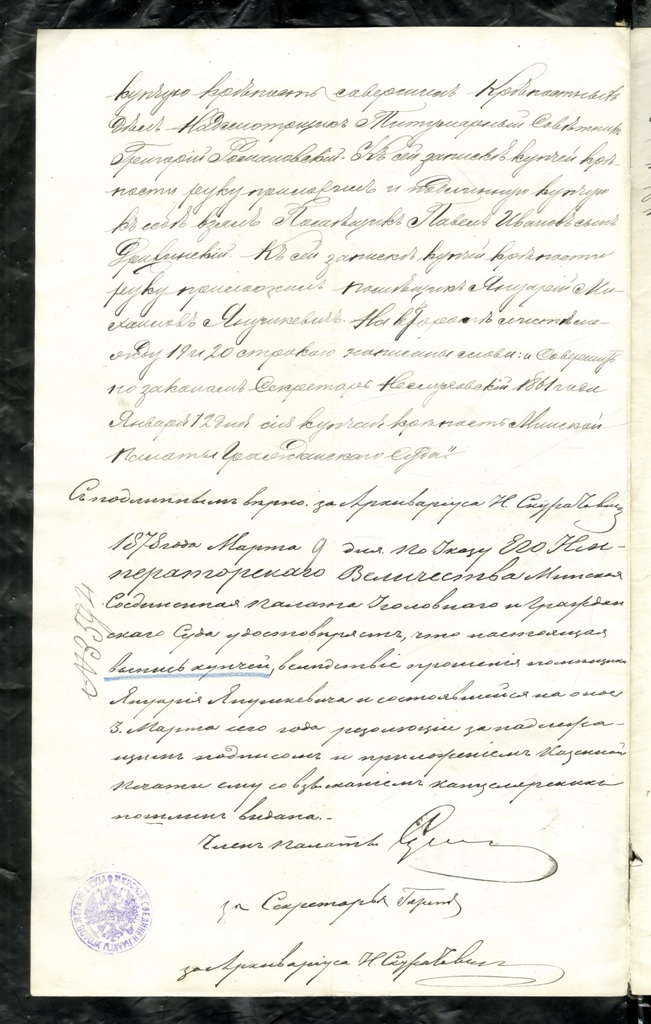 купчую крѣпость совершилъ Крѣпостныхъ
Дѣлъ Надсмотрщикъ Титулярный Совѣтникъ
Григорій Романовскій. Къ сей запискѣ купчей крѣ-
пости руку приложилъ и подлинную купчую
къ себѣ взялъ Помѣщикъ Павелъ Ивановъ сынъ
Къ сей запискѣ купчей крѣпости
руку приложилъ помѣщикъ Януарій Ми-
хайловъ Янушкевичъ. На второмъ листѣ ме-
жду 19 и 20 строкою написаны слова: и Совершить
по законамъ Секретарь 1861 года
Января 12 дня сія купчая крѣпость Минской
Палаты Гражданскаго Суда"
Съ подлиннымъ вѣрно: за Архиваріуса Н Скуратовичъ
1878 года Марта 9 дня по Указу Его Им-
ператорскаго Величества Минская
Соединенная Палата Уголовнаго и Граждан-
скаго Суда удостовѣряетъ, что настоящая
выпись купчей, вслѣдствіе прошенія помѣщика
Януарія Янушкевича и состоявшейся на оное
3 Марта сего года резолюціи за надлежа-
щимъ подписомъ и приложеніемъ Казенной
печати ему со взысканіемъ канцелярскихъ
пошлинъ выдана.-
Членъ палаты
за Секретаря
за Архиваріуса Н Скуратовичъ